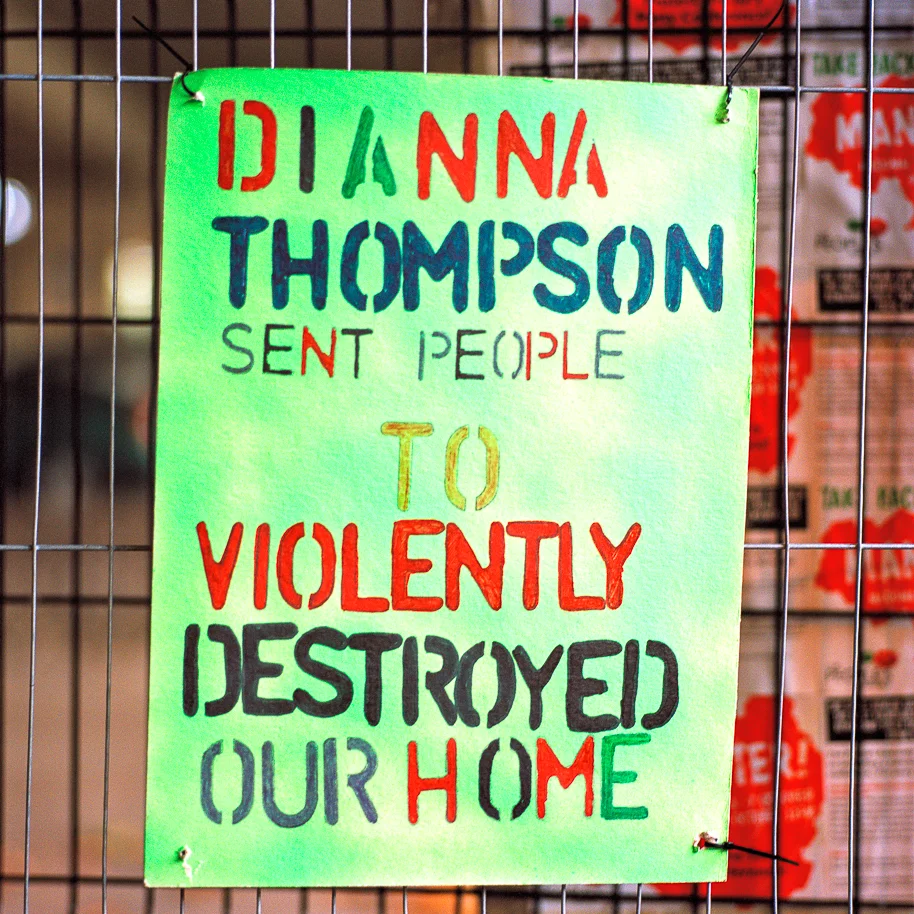 DIANNA
THOMPSON
SENT PEOPLE
TO
VIOLENTLY
DESTROYED
OUR HOME
TAKE BACK
MAN
TER!